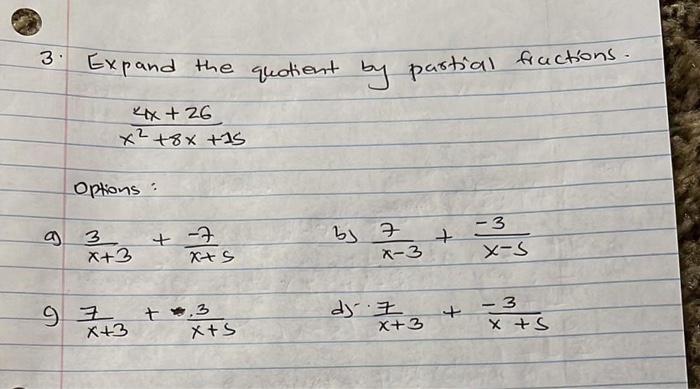 3. Expand the quotient by partial fractions.
4x + 26
x² + 8x + 15
Options :
a) 3/x+3 + -7/x+5 b) 7/x-3 + -3/x-5
g 7/x+3 + 3/x+5 d) 7/x+3 + -3/x+5